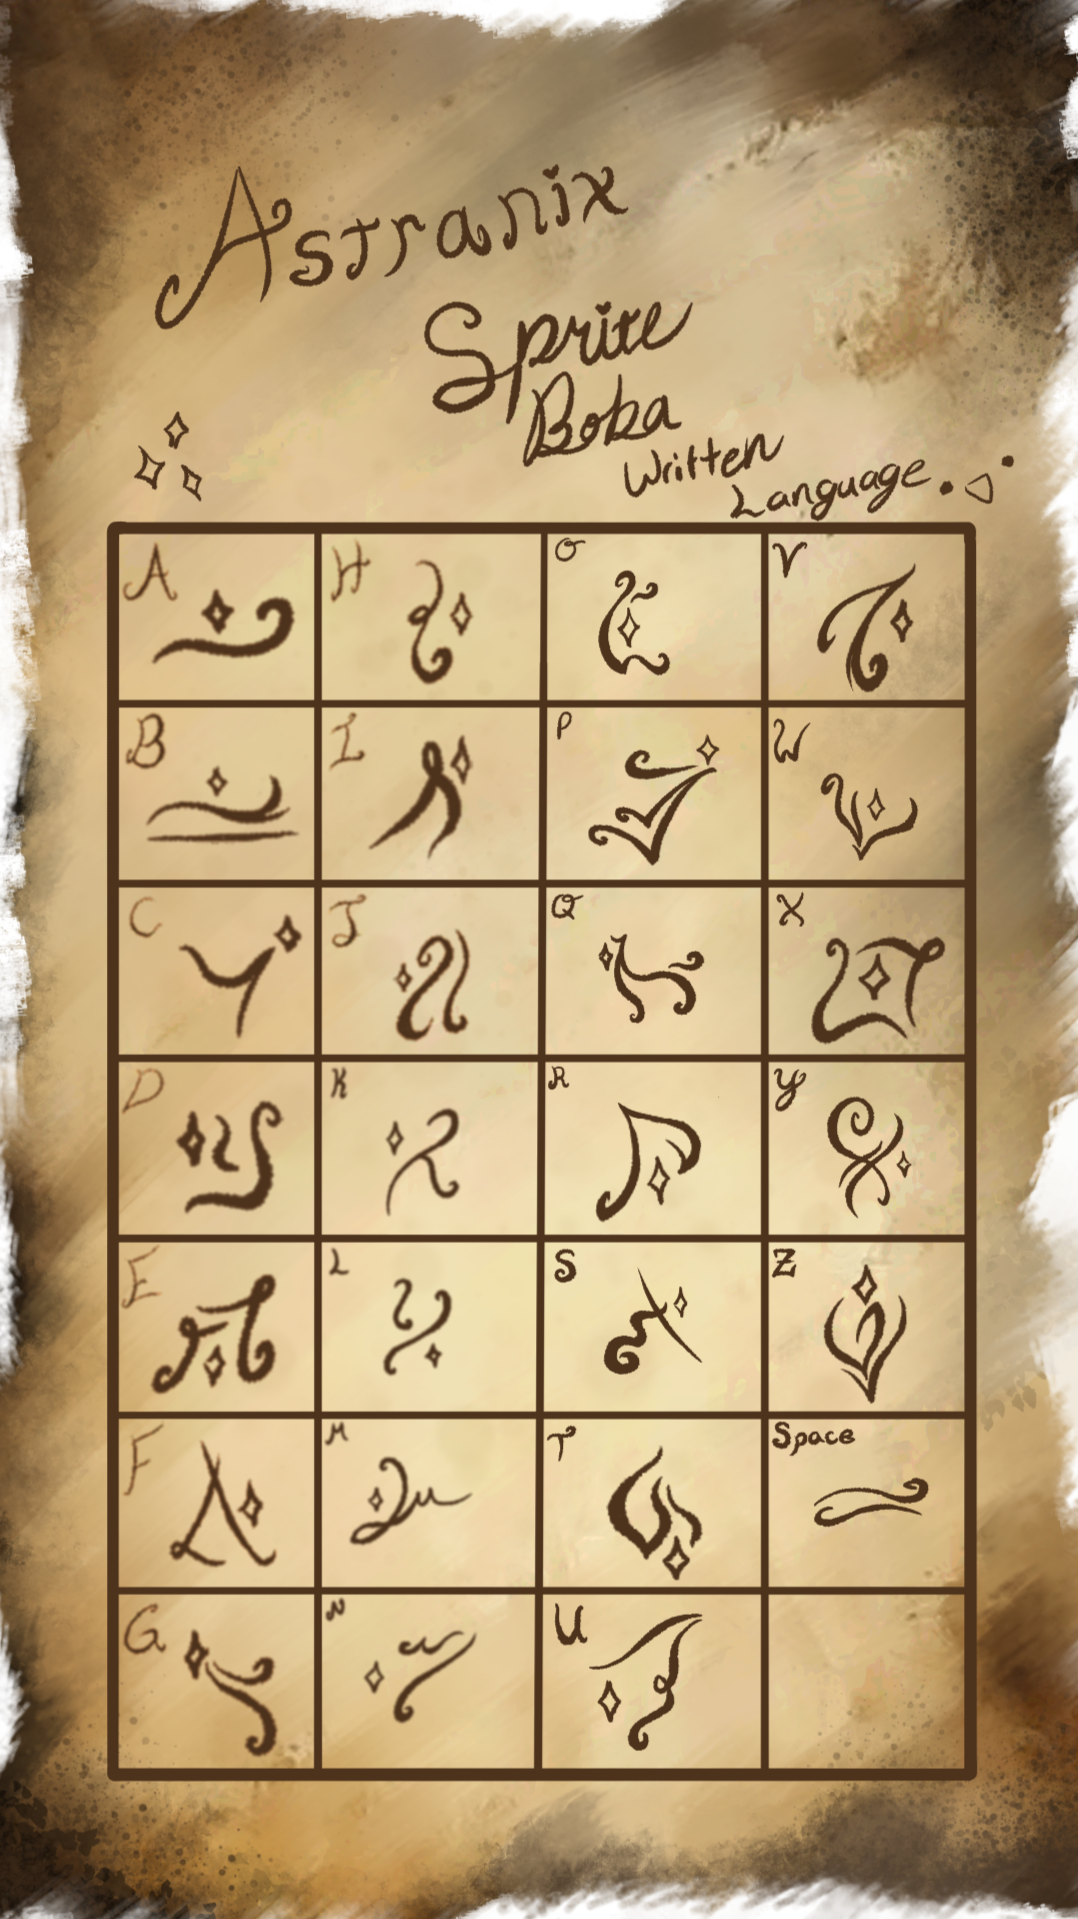 Astranix
Sprite
Boba
Written
Language
A H O V
B I P W
C J Q X
D K R Y
E L S Z
F M T Space
G N U